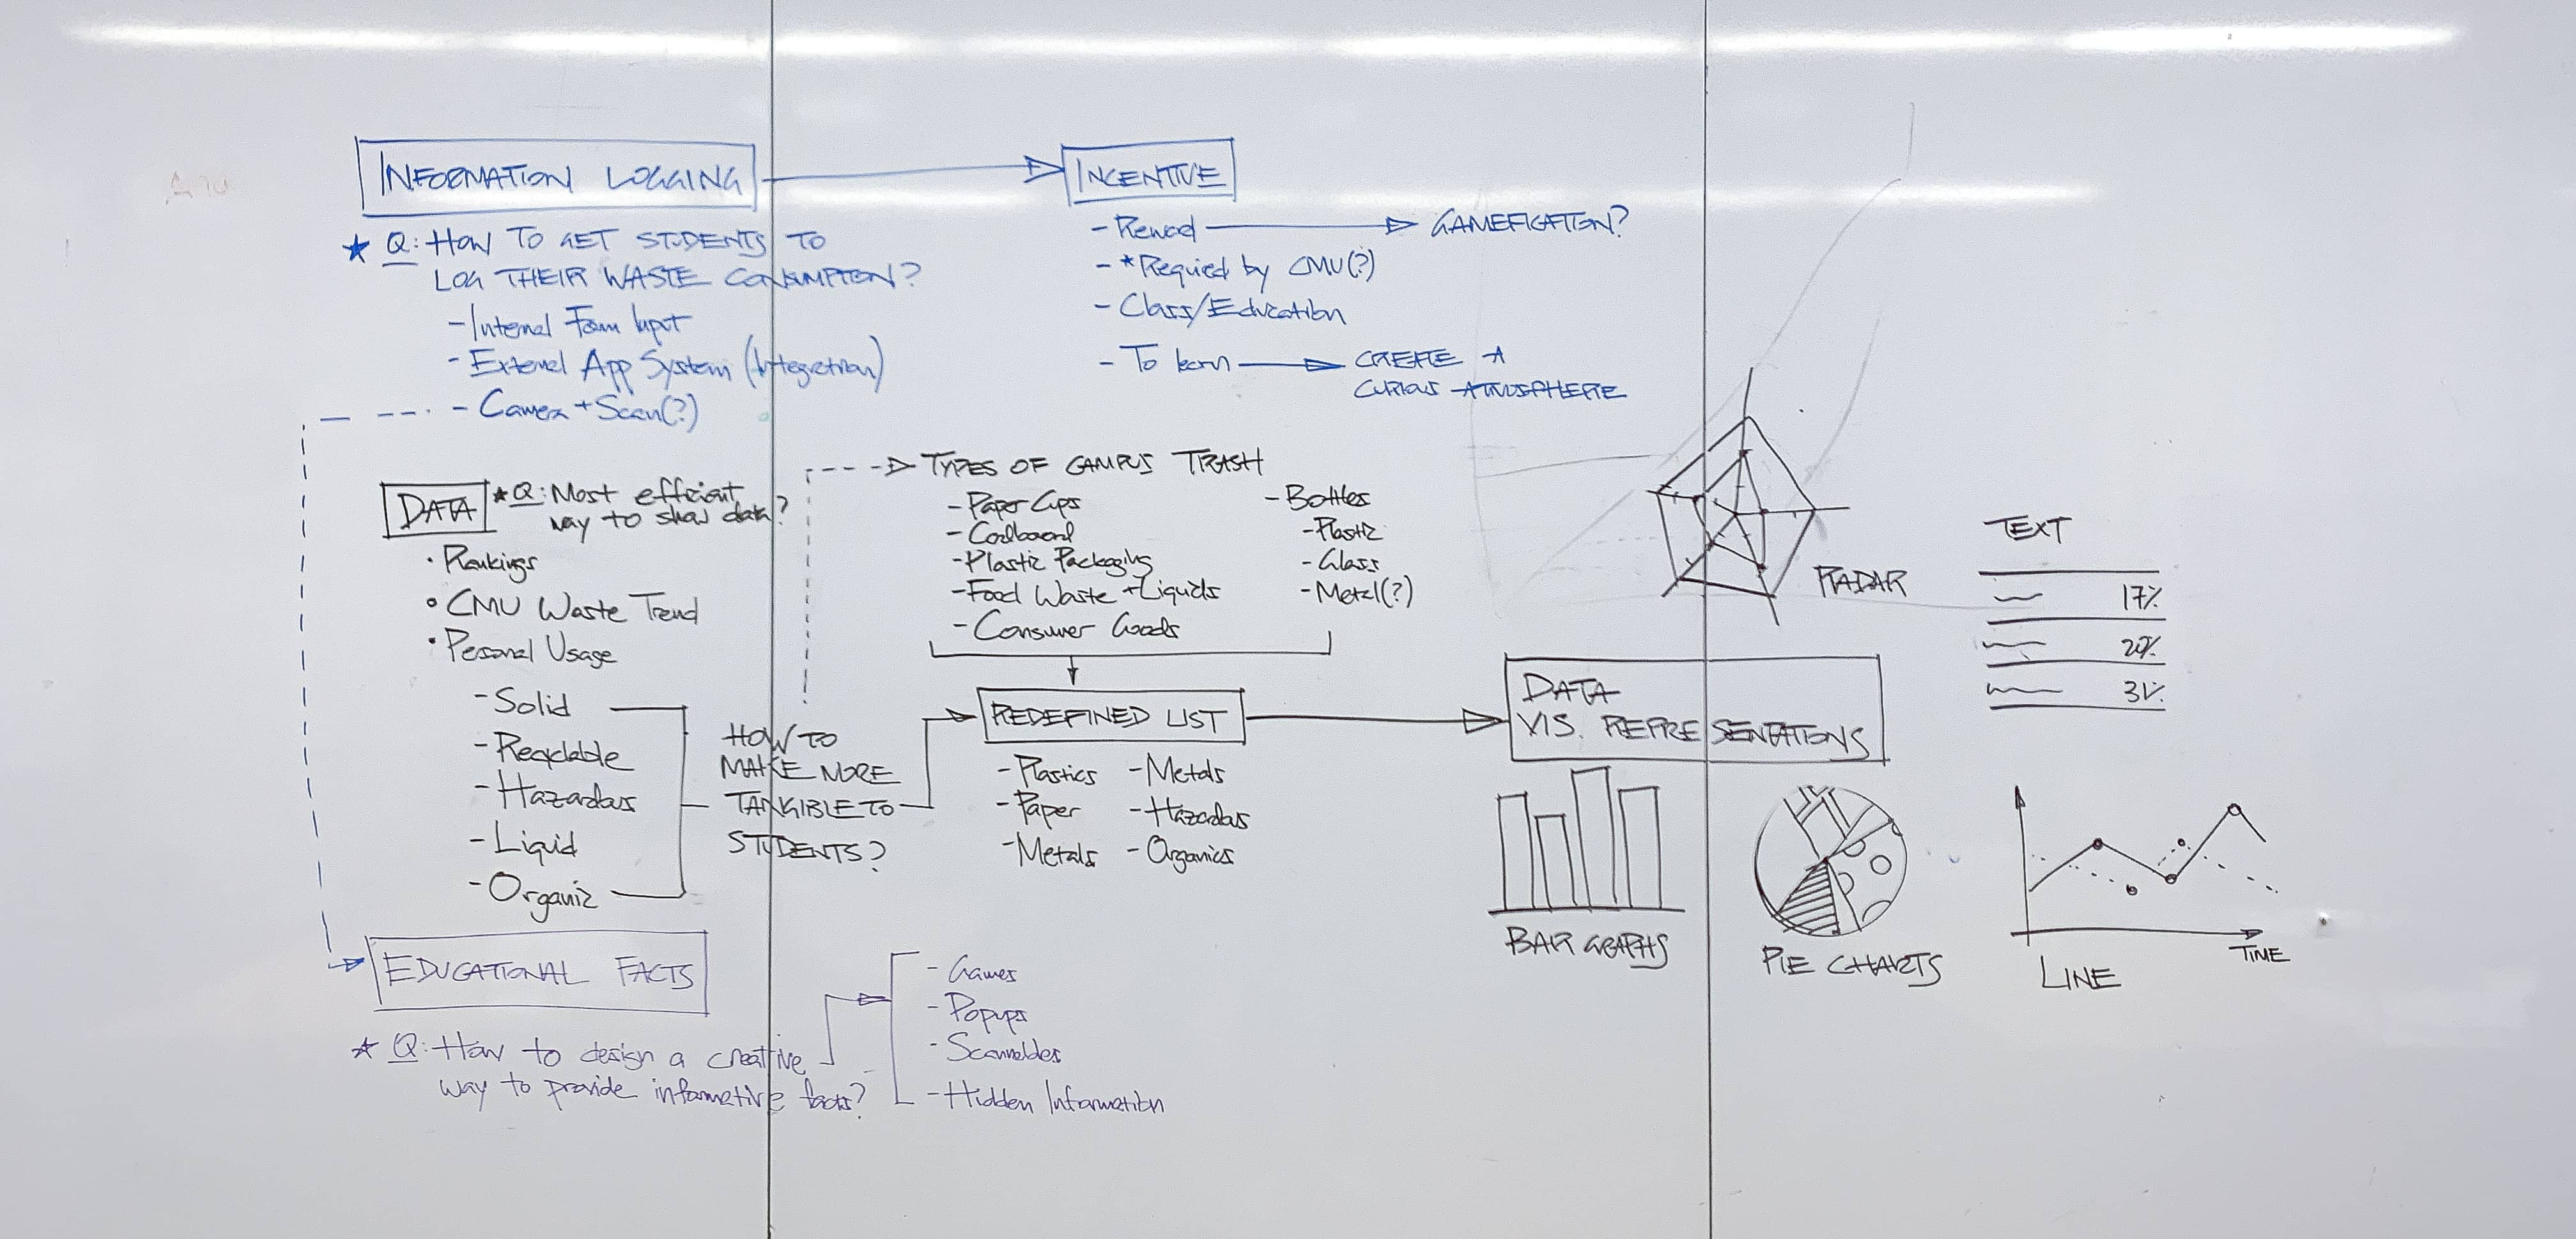 INFORMATION LOGGING
★ Q: HOW TO GET STUDENTS TO
LOG THEIR WASTE CONSUMPTION?
- Internal Form Input
- External App System (Integration)
- Camera + Scan(?)
INCENTIVE
- Reward
GAMEFICATION?
- *Required by CMU(?)
- Class/Education
- To learn
CREATE A
CURIOUS ATMOSPHERE
DATA
★ Q: Most efficient
way to show data?
• Rankings
• CMU Waste Trend
• Personal Usage
- Solid
- Recyclable
- Hazardous
- Liquid
- Organic
HOW TO
MAKE MORE
TANGIBLE TO
STUDENTS?
TYPES OF CAMPUS TRASH
- Paper Cups
- Cardboard
- Plastic Packaging
- Food Waste + Liquids
- Consumer Goods
- Bottles
- Plastic
- Glass
- Metal(?)
REDEFINED LIST
- Plastics
- Paper
- Metals
- Metals
- Hazardous
- Organics
DATA
VIS. REPRESENTATIONS
RADAR
TEXT
17%
20%
31%
BAR GRAPHS
PIE CHARTS
LINE
TIME
EDUCATIONAL FACTS
★ Q: How to design a creative
way to provide informative facts?
- Games
- Popups
- Hidden Information